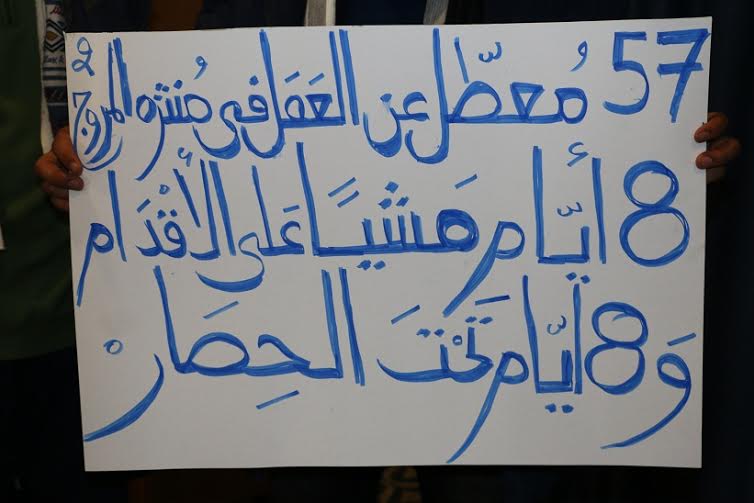 57 مُعطّل عن العَمَل في مُنتزه المروج 2
8 أيّام مَشيًا عَلى الأقْدَام
وَ 8 أيّام تَحْتَ الحِصَار